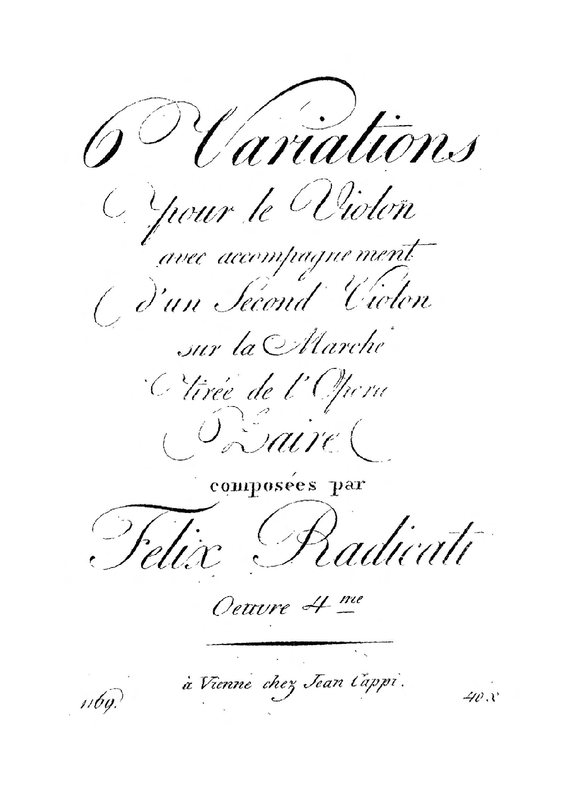 6 Variations
pour le Violon
avec accompagnement
d'un Second Violon
sur la Marche
tirée de l'Opera
Zaire
composées par
Felix Radicati
Oeuvre 4 me
à Vienne chez Jean Cappi.
1169. 40 x